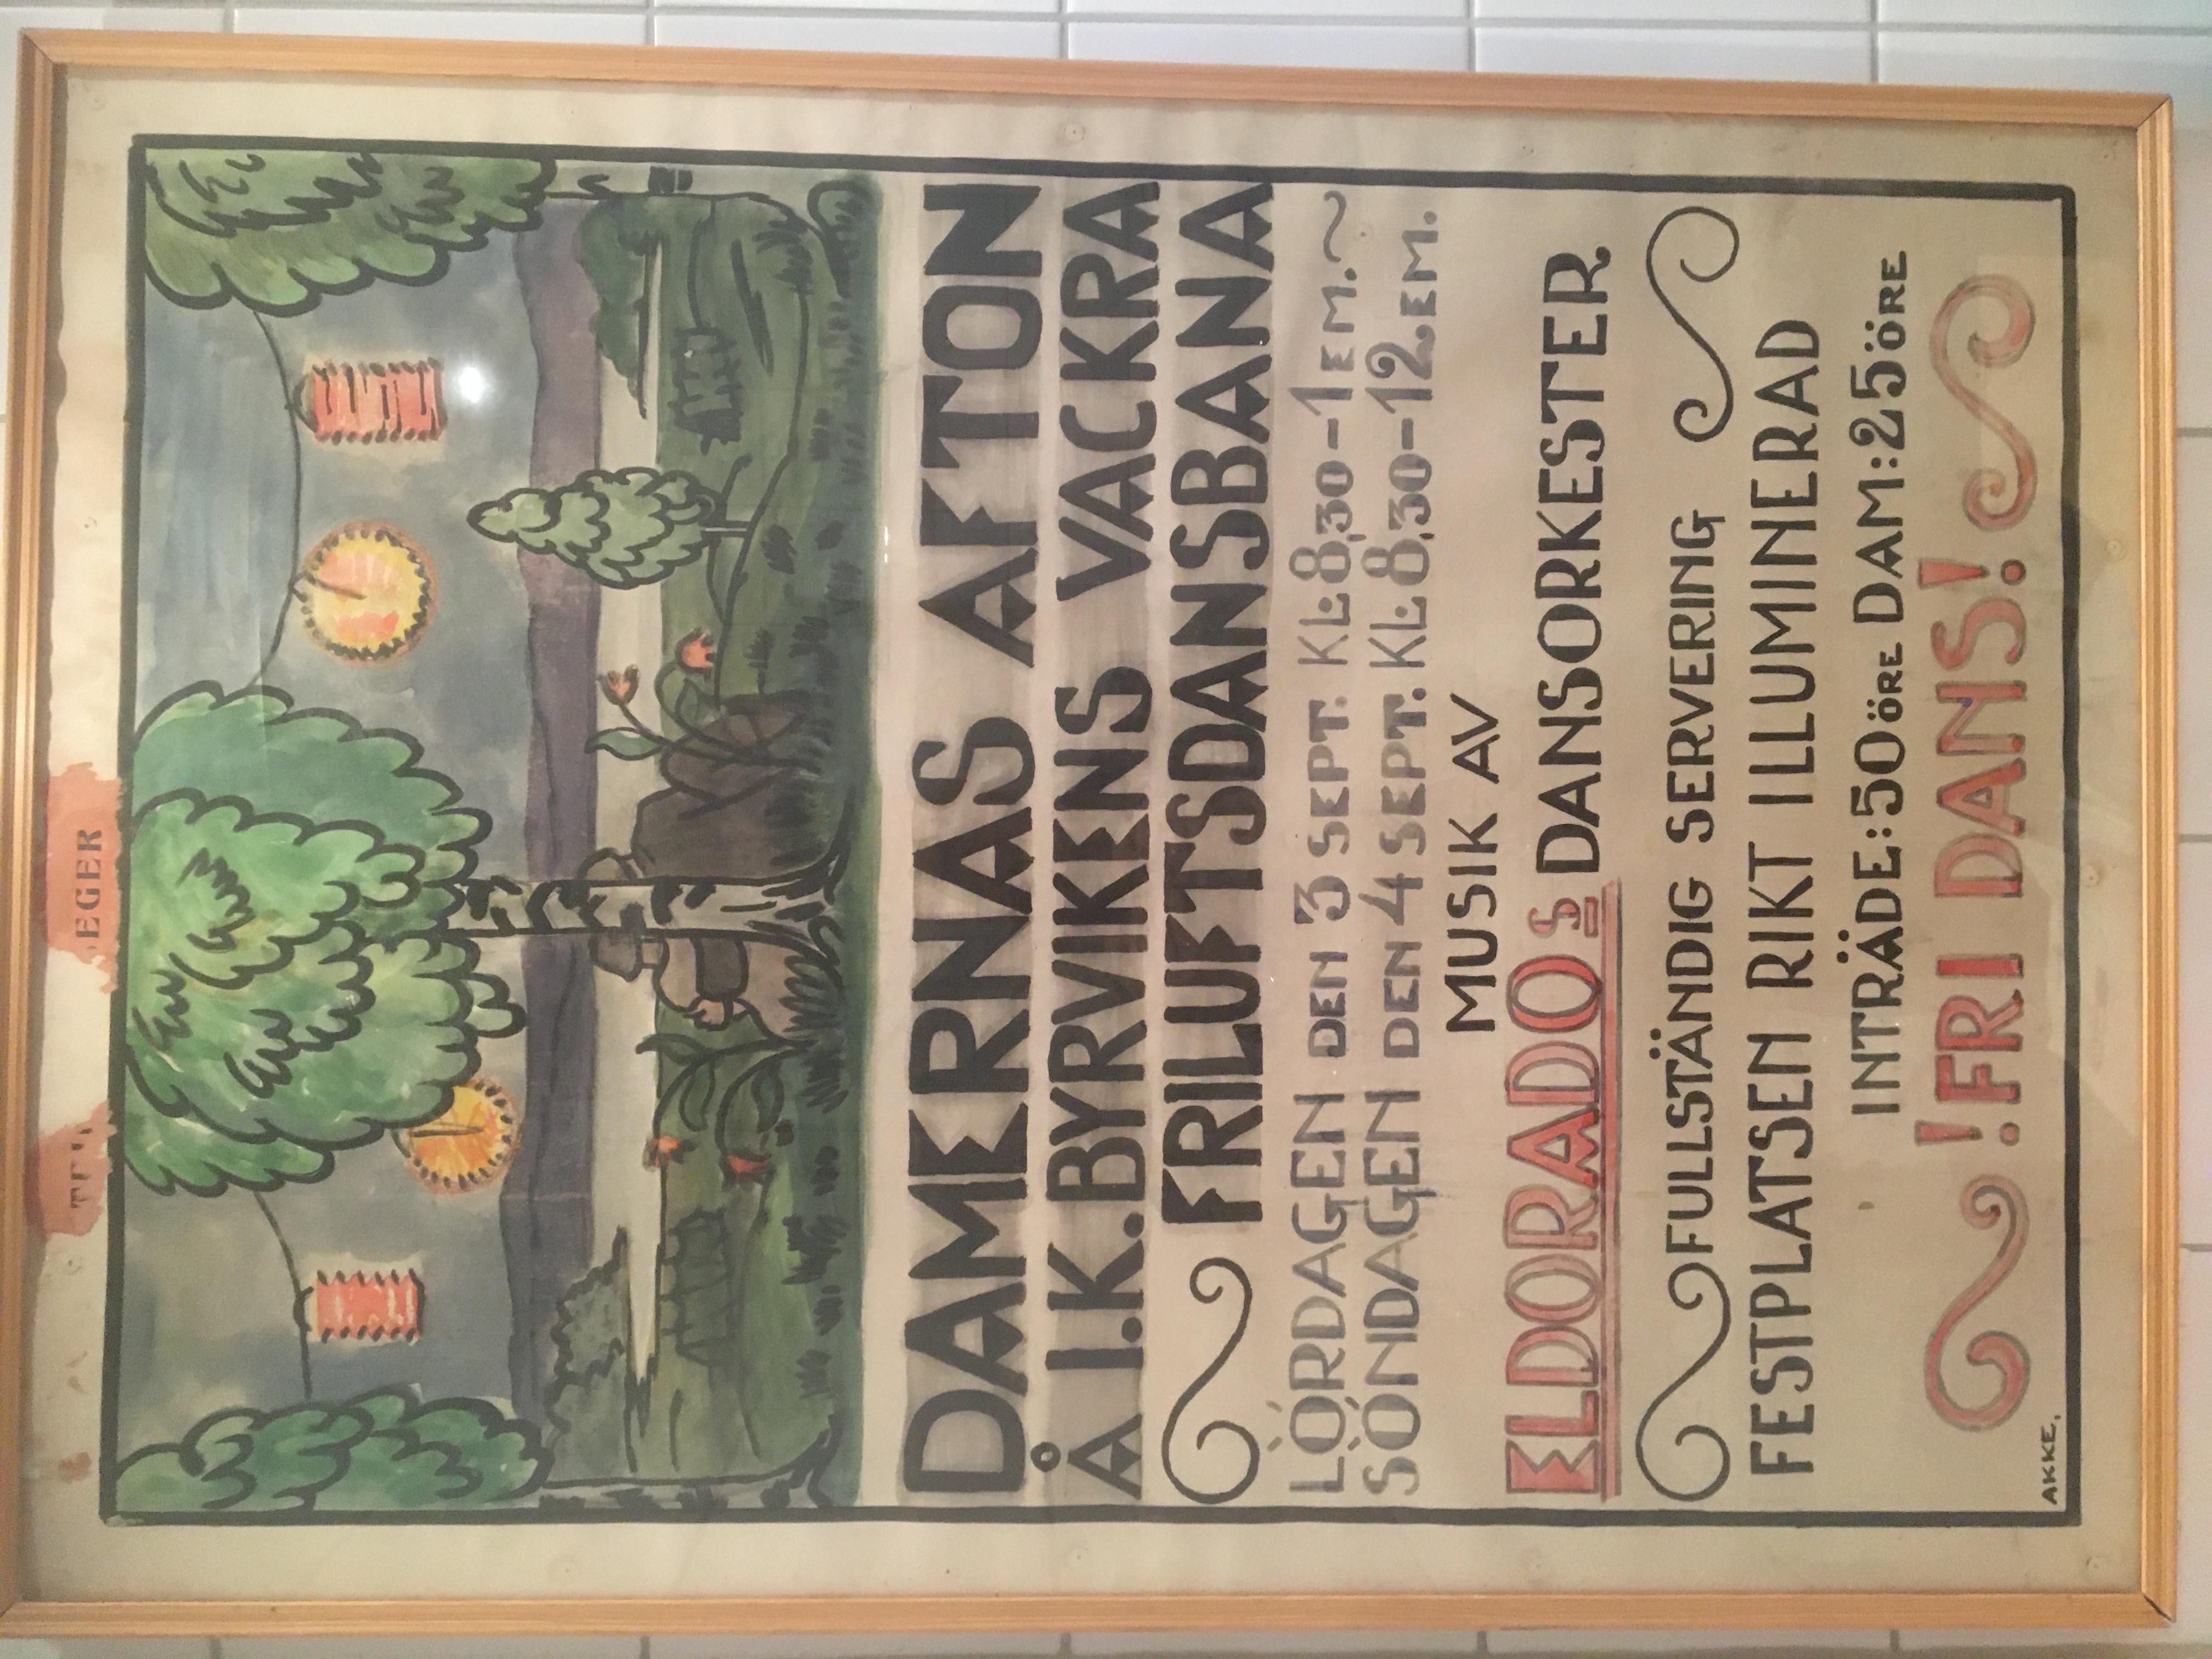 EGER
DAMERNAS AFTON
Å I.K. BYRVIKENS VACKRA
FRILUFTSDANSBANA
LÖRDAGEN DEN 3 SEPT. KL: 8,30-1 EM.~
SÖNDAGEN DEN 4 SEPT. KL: 8,30-12. EM.
MUSIK AV
ELDORADOs DANSORKESTER
FULLSTÄNDIG SERVERING
FESTPLATSEN RIKT ILLUMINERAD
INTRÄDE: 50 ÖRE DAM: 25 ÖRE
!FRI DANS!
AKKE.